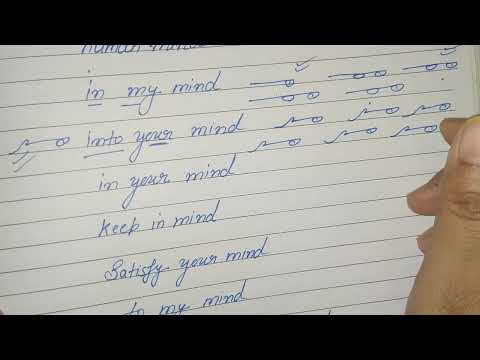 human
in my mind
into your mind
in your mind
keep in mind
Satisfy your mind
to my mind